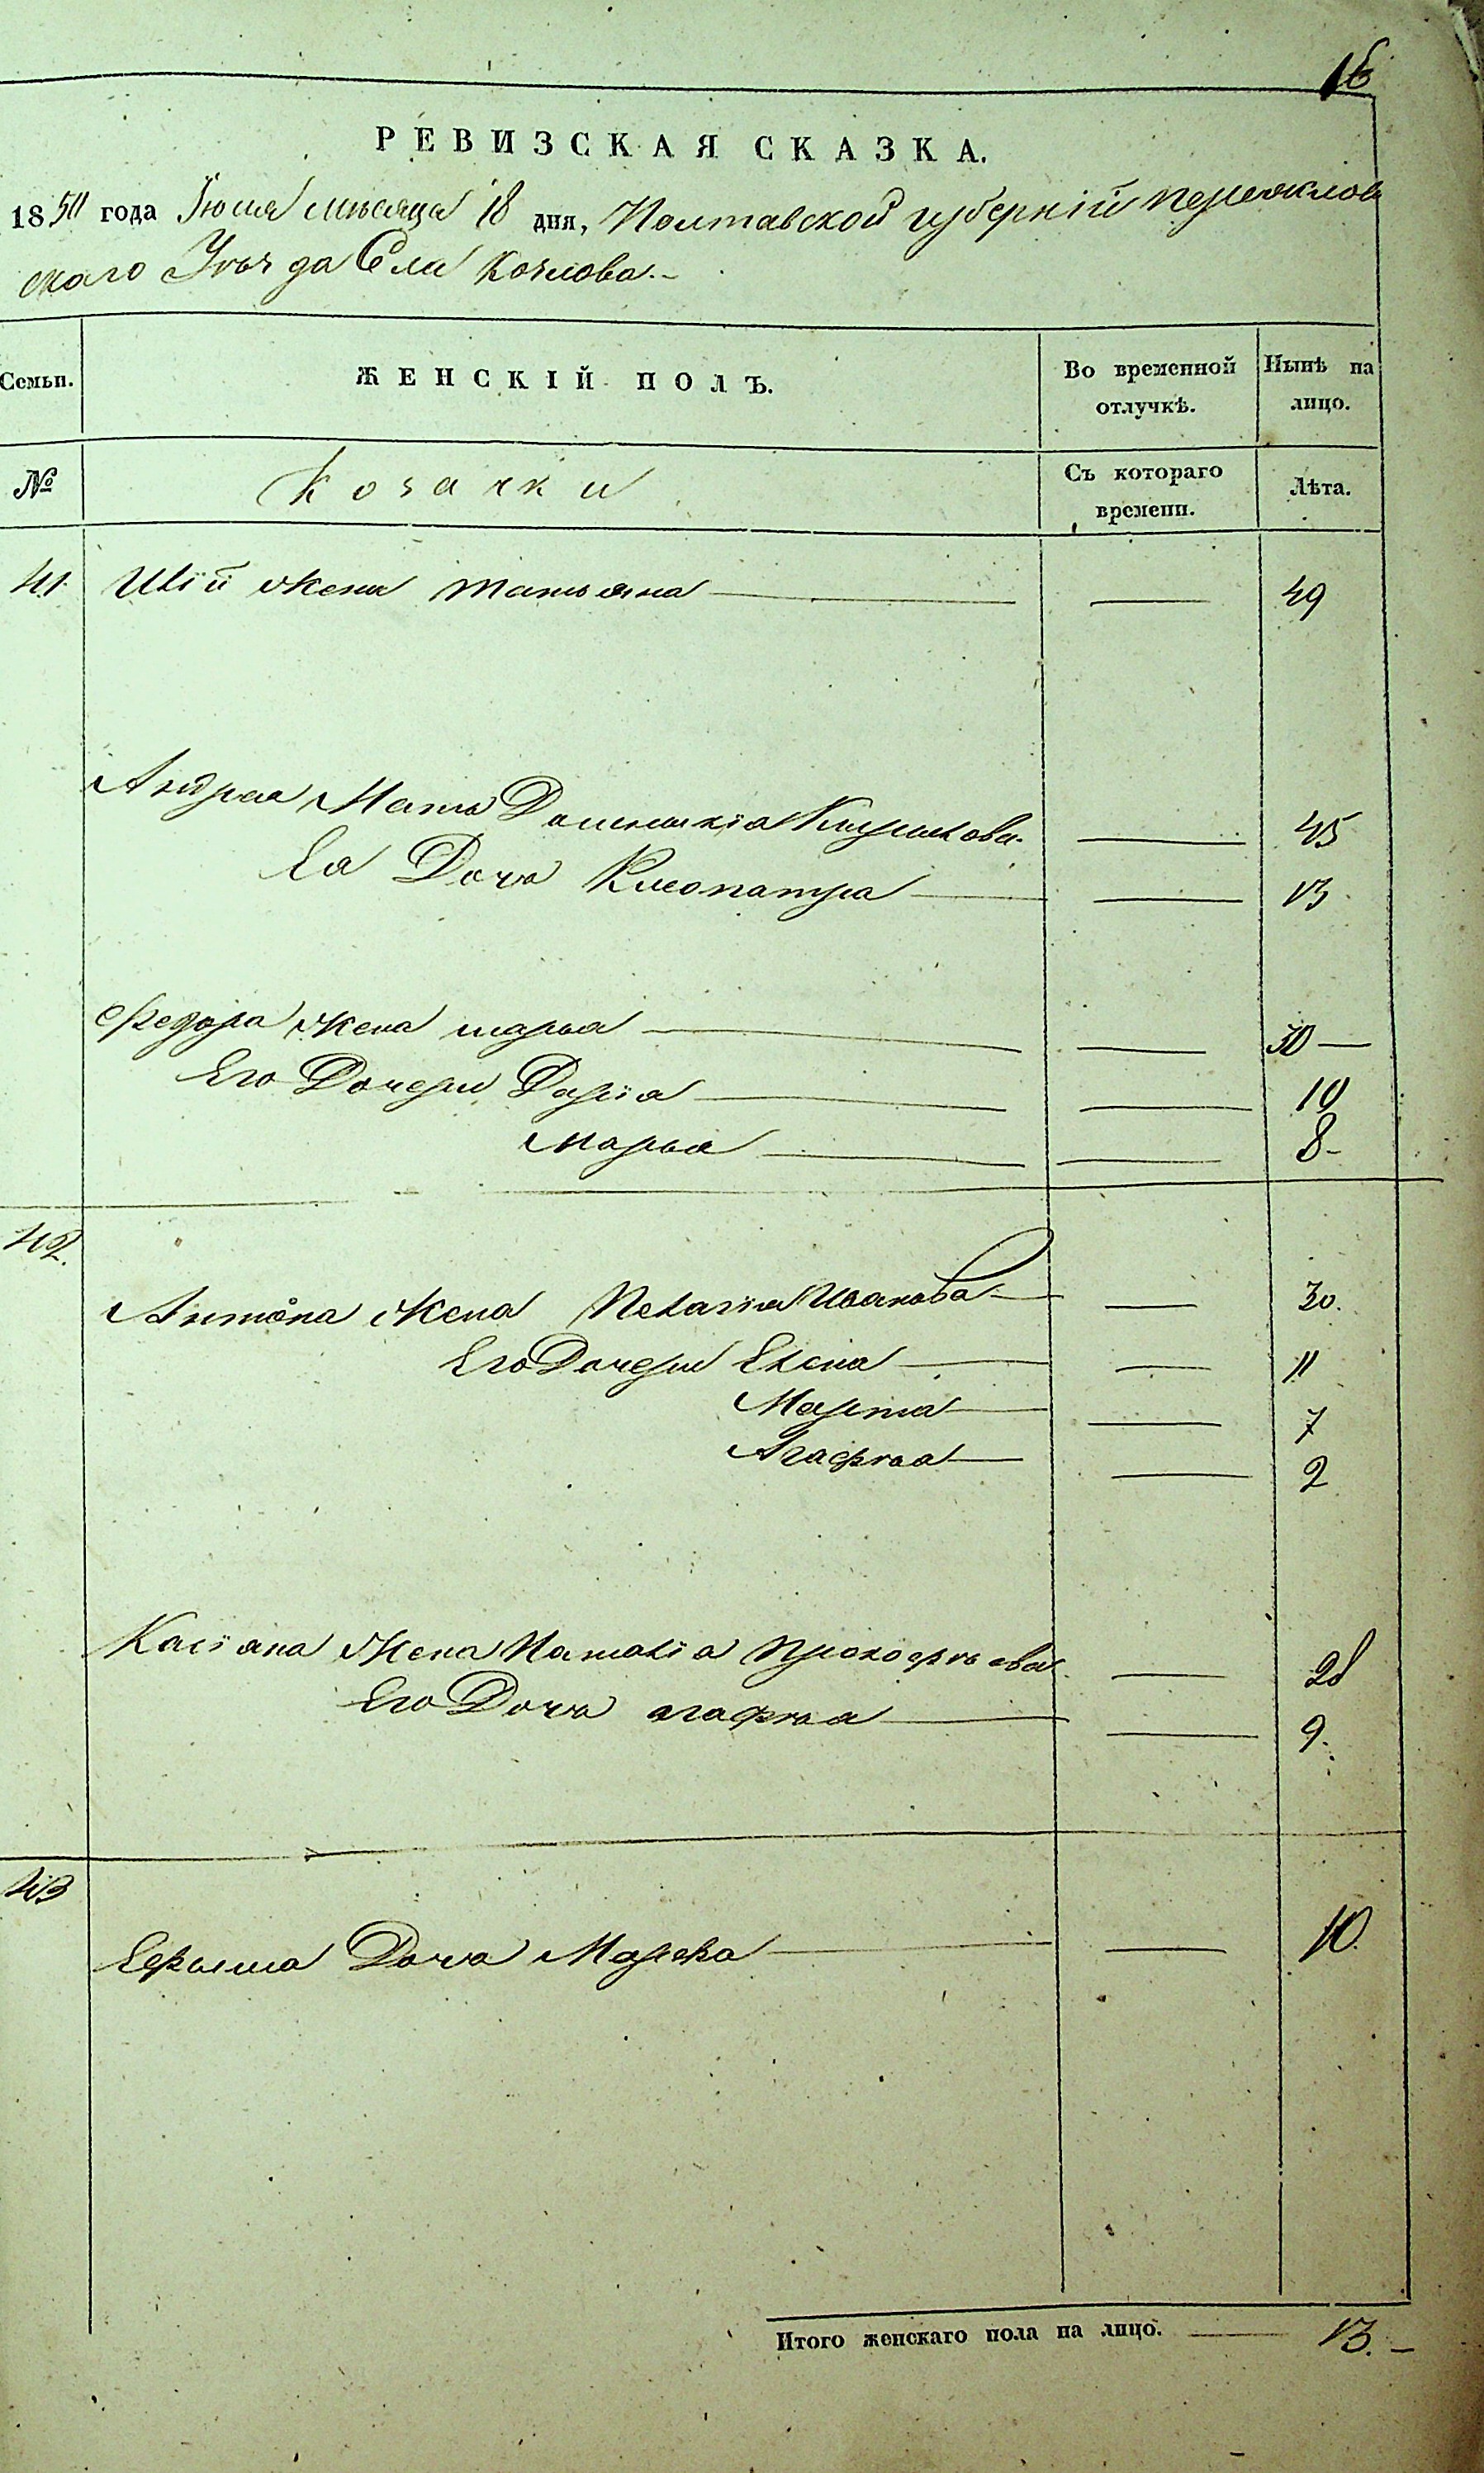 16
РЕВИЗСКАЯ СКАЗКА.
1850 года Іюля мѣсяца 18 дня, Полтавской губерніи Переяслов
скаго Уѣзда Села Козлова.-
Семьи. ЖЕНСКІЙ ПОЛЪ. Во временной отлучкѣ. Нынѣ на лицо.
№ Козачки Съ котораго времени. Лѣта.
41 Иліи жена Татьяна — — 49
Андрея Мать Домникія Кирилова — 45
Ея Дочь Клеопатра — — 13
Федора жена марья — — 30 —
Его Дочери Дарія — — 10
Марья — — 8-
42.
Антона жена Пелагія Иванова — — 30.
Его Дочери Елена — — 11
Марта — — 7
Агафья — — 2
Касіяна жена Наталія Прокофьева — 28
Его Дочь агафья — — 9.
43
Ефима Дочь Марфа — — 10.
Итого женскаго пола на лицо. — 13.-